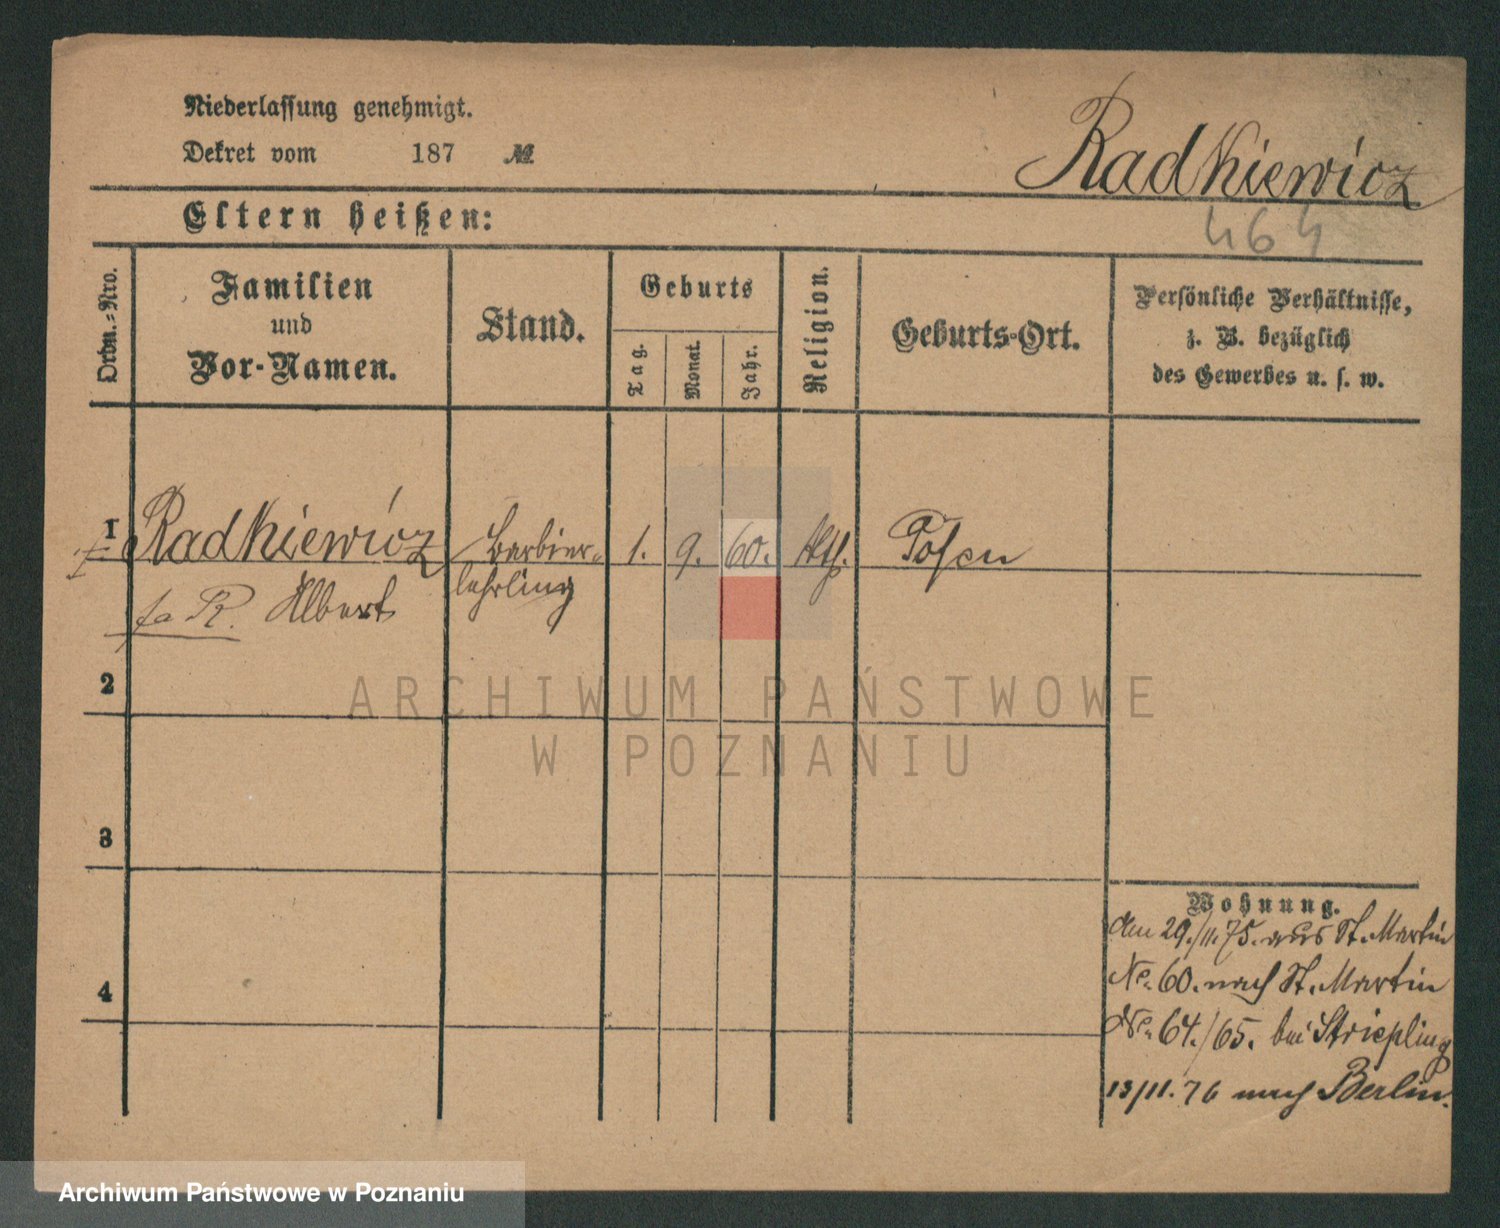 Niederlassung genehmigt.
Dekret vom 187 №
Radkiewicz
Eltern heißen:
464
Ordn.-Nro.
Familien
und
Vor-Namen.
Stand.
Geburts
Tag.
Monat.
Jahr.
Religion.
Geburts-Ort.
Persönliche Verhältnisse,
z. B. bezüglich
des Gewerbes u. s. w.
1 Radkiewicz Barbier- 1. 9. 60. kth. Posen
Albert lehrling
2
3
4
ARCHIWUM PAŃSTWOWE
W POZNANIU
Wohnung.
den 29./11.75. aus St. Martin
No. 60. nach St. Martin
No. 64./65. bei Striepling
13/11. 76 nach Berlin.
Archiwum Państwowe w Poznaniu